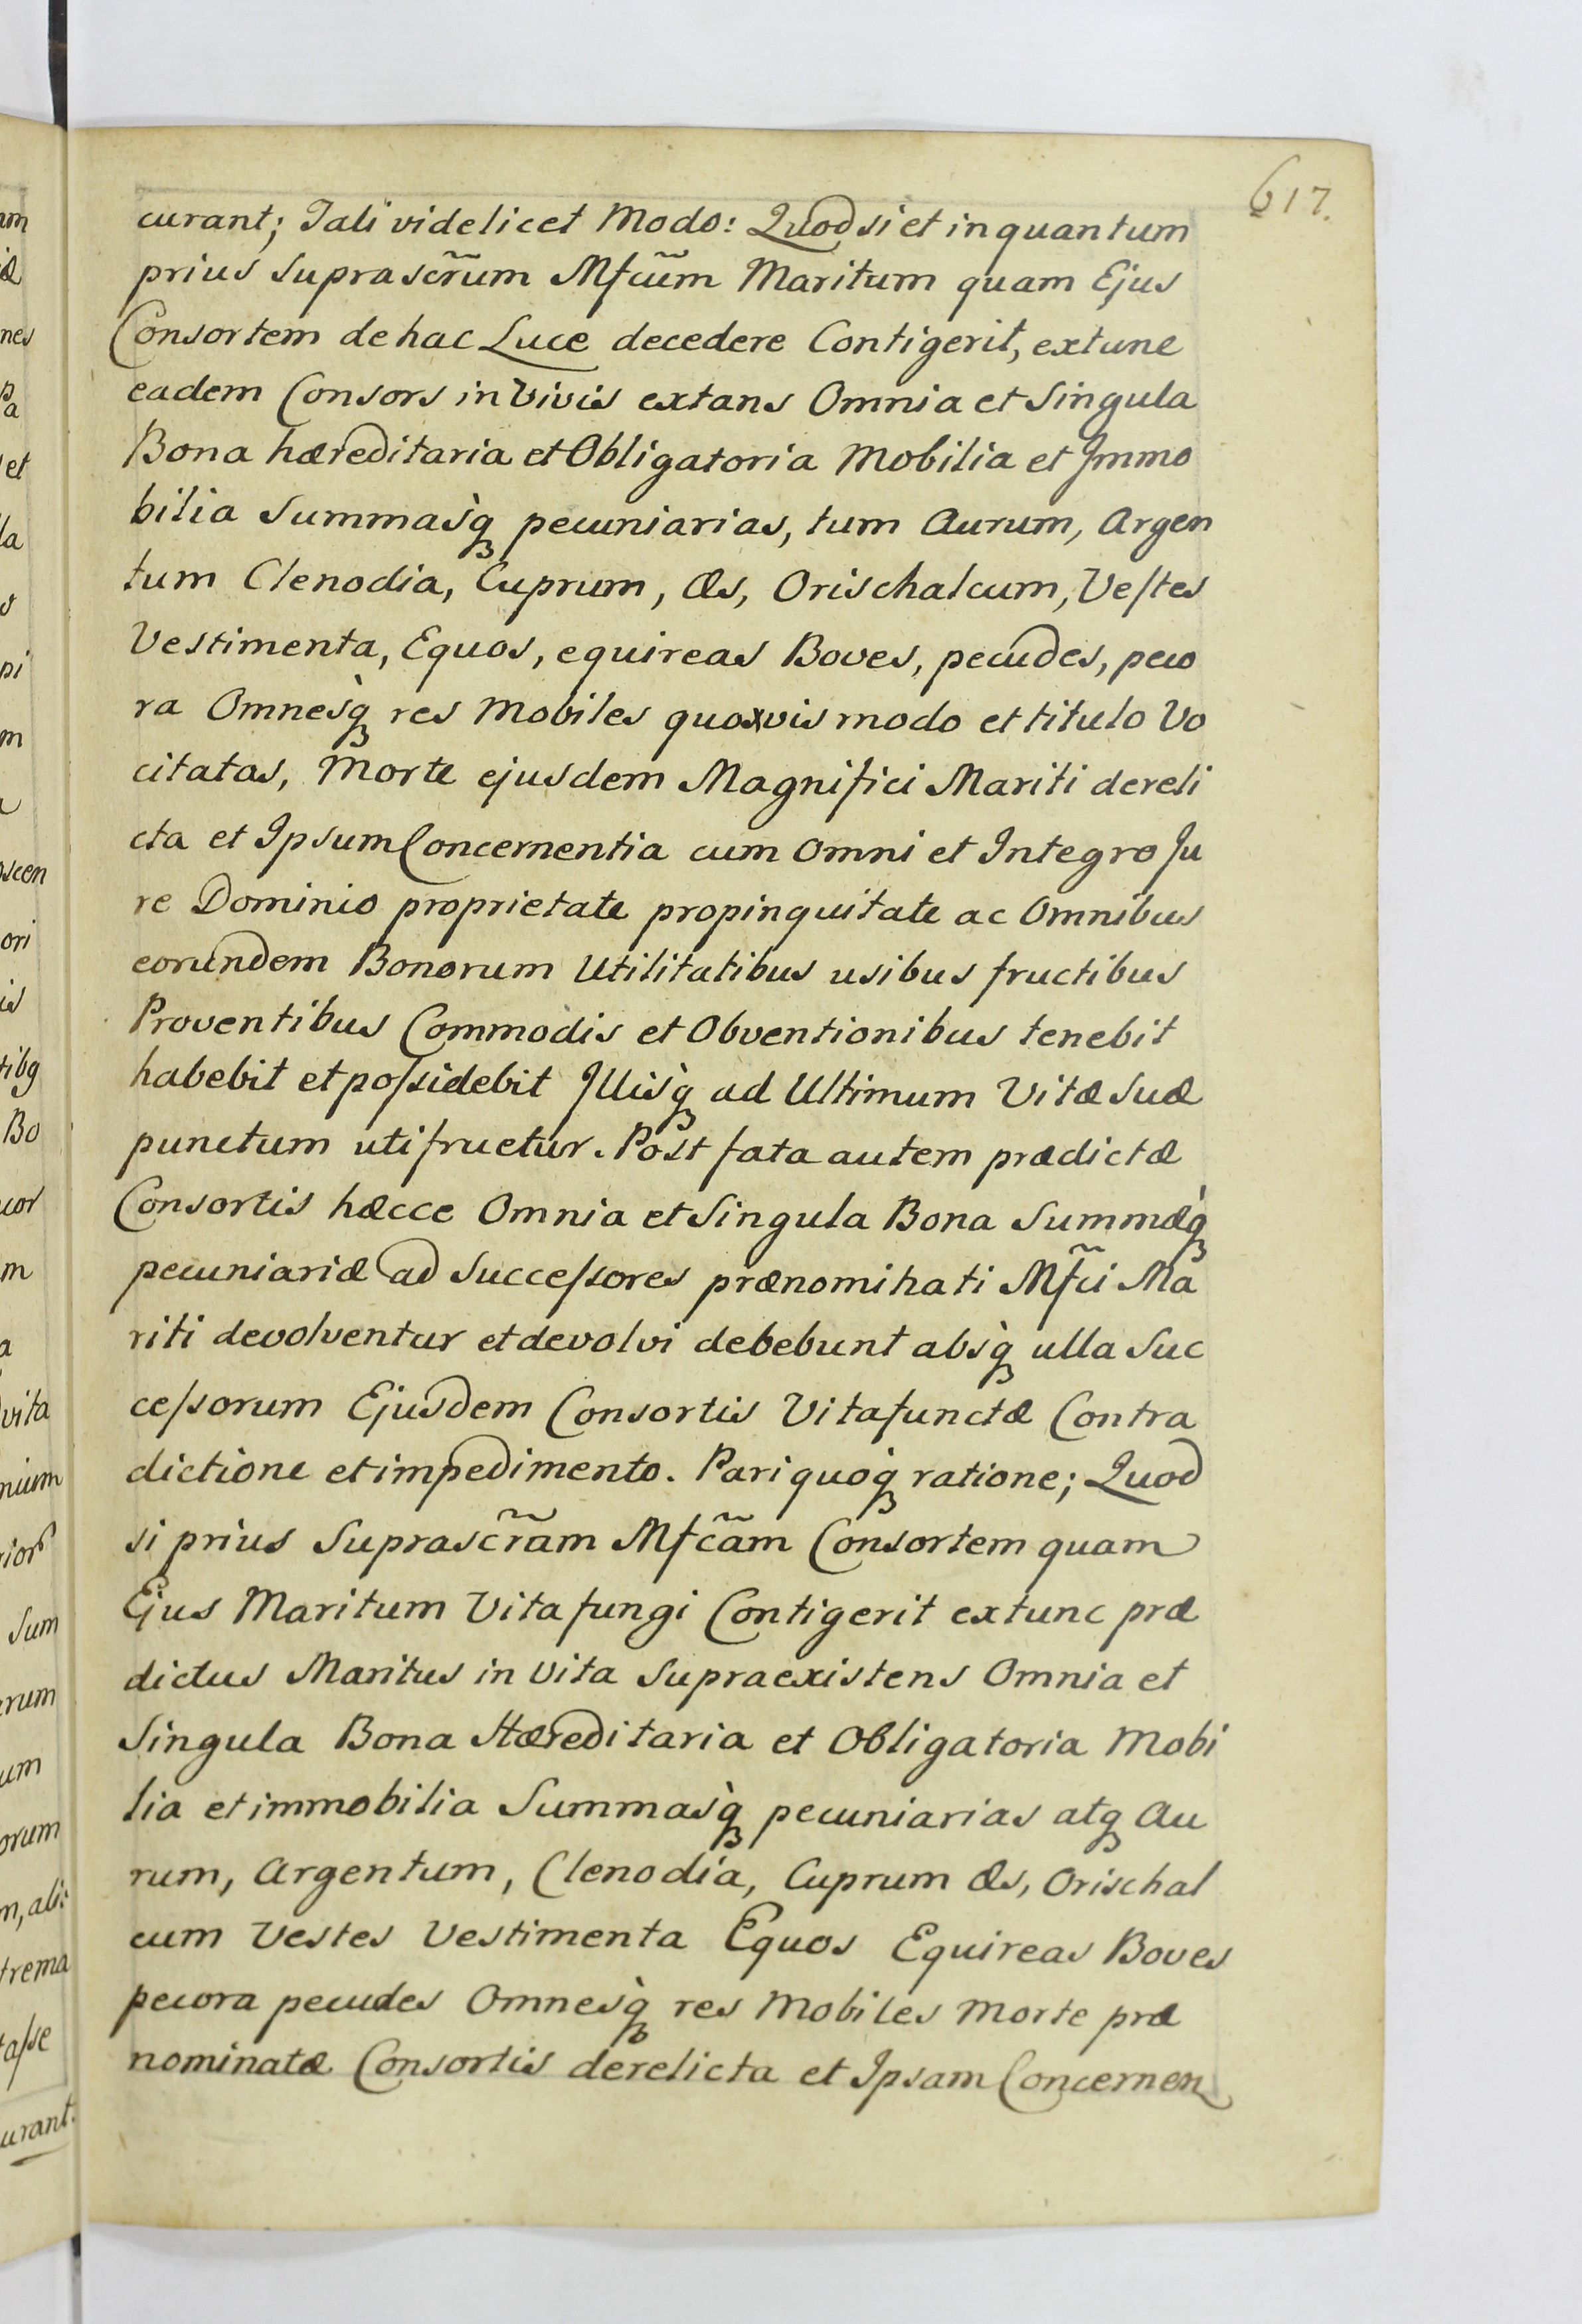 617.
curant; Tali videlicet Modo: Quod si et inquantum
prius suprascr̃um Mfcũm Maritum quam Ejus
Consortem de hac Luce decedere Contigerit, extunc
eadem Consors in Vivis extans Omnia et Singula
Bona hæreditaria et Obligatoria Mobilia et Immo
bilia Summasq̀ pecuniarias, tum Aurum, Argen
tum Clenodia, Cuprum, Æs, Orischalcum, Vestes
Vestimenta, Equos, equireas Boves, pecudes, peco
ra Omnesq̀ res Mobiles quoxvis modo et titulo Vo
citatas, Morte ejusdem Magnifici Mariti dereli
cta et Ipsum Concernentia cum Omni et Integro Ju
re Dominio proprietate propinquitate ac Omnibus
eorundem Bonorum Utilitatibus usibus fructibus
Proventibus Commodis et Obventionibus tenebit
habebit et possidebit Illisq̀ ad Ultimum Vitæ suæ
punctum utifruetur. Post fata autem prædictæ
Consortis hæcce Omnia et Singula Bona Summæq̀
pecuniariæ ad Successores prænominati Mf̃ci Ma
riti devolventur et devolvi debebunt absq̀ ulla Suc
cessorum Ejusdem Consortis Vitafunctæ Contra
dictione et impedimento. Pari quoq̀ ratione; Quod
si prius Suprascr̃am Mfcãm Consortem quam
Ejus Maritum Vita fungi Contigerit extunc præ
dictus Maritus in Vita Supraexistens Omnia et
Singula Bona Hæreditaria et Obligatoria Mobi
lia et immobilia Summasq̀ pecuniarias atq Au
rum, Argentum, Clenodia, Cuprum Æs, Orischal
cum Vestes Vestimenta Equos Equireas Boves
pecora pecudes Omnesq̀ res Mobiles Morte præ
nominatæ Consortis derelicta et Ipsam Concernen